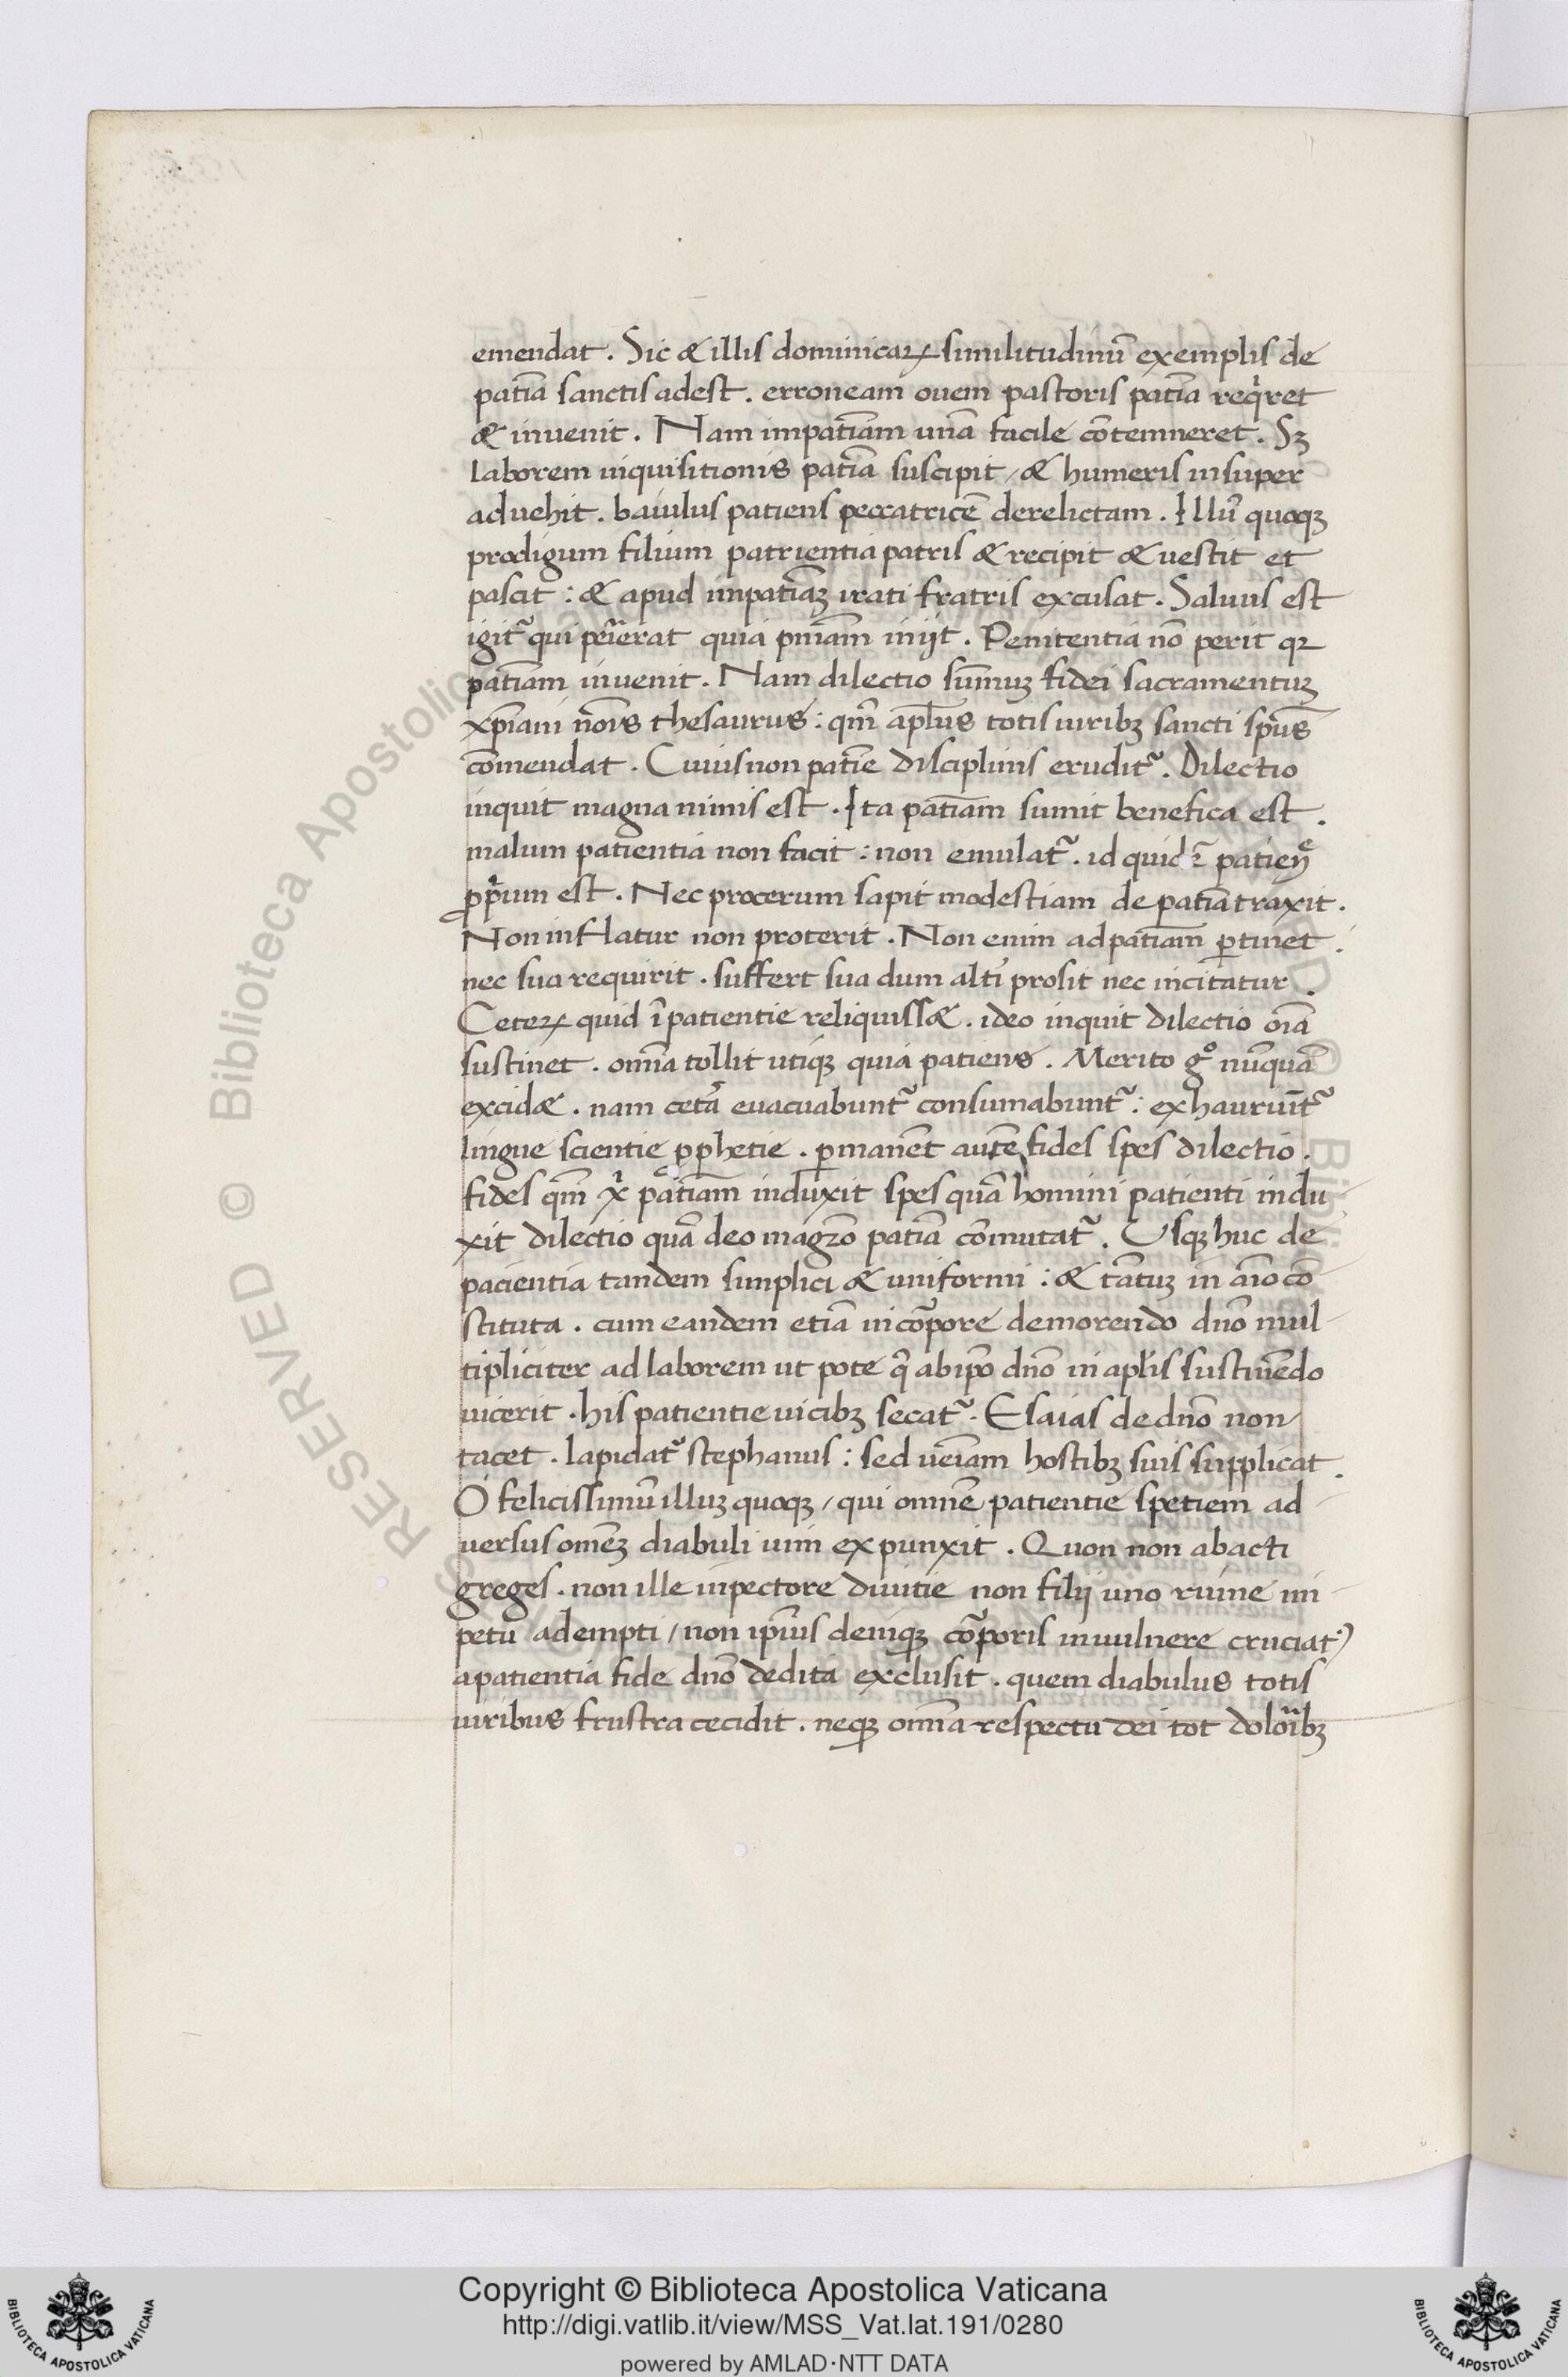 emendat. Sic & illis dominicaꝝ similitudinū exemplis de
patīa sanctis adest. erroneam ouem pastoris patīa reqͥret
& inuenit. Nam impatīam unā facile cōtemneret. Sꝫ
laborem inquisitionis patīa suscipit / & humeris insuper
aduehit. baiulus patiens peccatricē derelictam. Illū quoqꝫ
prodigum filium patrientia patris & recipit & uestit et
pascit : & apud impatīaꝫ irati fratris excusat. Saluus est
igitᷣ qui perierat quia pnīam inijt. Penitentia nō perit qꝛ
patīam inuenit. Nam dilectio sūmuꝫ fidei sacramentuꝫ
xp̄iani nōis thesaurus : qm̄ apl̄us totis uiribꝫ sancti sp̄us
cōmendat. Cuius non patīe disciplinis eruditᷣ. Dilectio
inquit magnanimis est. Ita patīam sumit benefica est.
malum patientia non facit : non emulatᷣ. id quid ī patien
ꝓprium est. Nec procerum sapit modestiam de patīa traxit.
Non inflatur non proterit. Non enim ad patīam ꝑtinet.
nec sua requirit. suffert sua dum altī prosit nec incitatur.
Ceteꝝ quid īpatientie reliquiss&. ideo inquit dilectio oīa
sustinet. omīa tollit utiqꝫ quia patiens. Merito gͦ nūquā
excid&. nam cetā euacuabuntᷣ consumabuntᷣ : exhauriūtᷣ
lingue scientie ꝓphetie. ꝑmanēt autē fides spes dilectio.
fides qm̄ xͥ patīam induxit spes quā homini patienti indu-
xit dilectio quā deo magrō patīa cōmutatᷣ. Usqꝫ huc de
pacientia tandem simplici & uniformi : & tātuꝫ in aīo cō-
stituta. cum eandem etiā in corꝑore demorendo dn̄o mul-
tipliciter ad laborem ut pote q̄ ab ip̄o dn̄o in apl̄is sustinēdo
uicerit. his patientie uicibꝫ secatᷣ. Esaias de dn̄o non
tacet. lapidatᷣ stephanus : sed uēiam hostibꝫ suis supplicat.
O felicissimū illuꝫ quoqꝫ / qui omnē patientie spetiem ad-
uersus omēꝫ diabuli uim expunxit. Quon non abacti
greges. non ille inpectore diuitie non filij uno ruine im-
petu adempti / non ip̄ius deniqꝫ corꝑoris inuulnere cruciatᷣ
apatientia fide dn̄o dedita exclusit. quem diabulus totis
uiribus frustra cecidit. neqꝫ omīa respectu dei tot dolorībꝫ
Copyright © Biblioteca Apostolica Vaticana
http://digi.vatlib.it/view/MSS_Vat.lat.191/0280
powered by AMLAD·NTT DATA
BIBLIOTECA APOSTOLICA VATICANA
BIBLIOTECA APOSTOLICA VATICANA